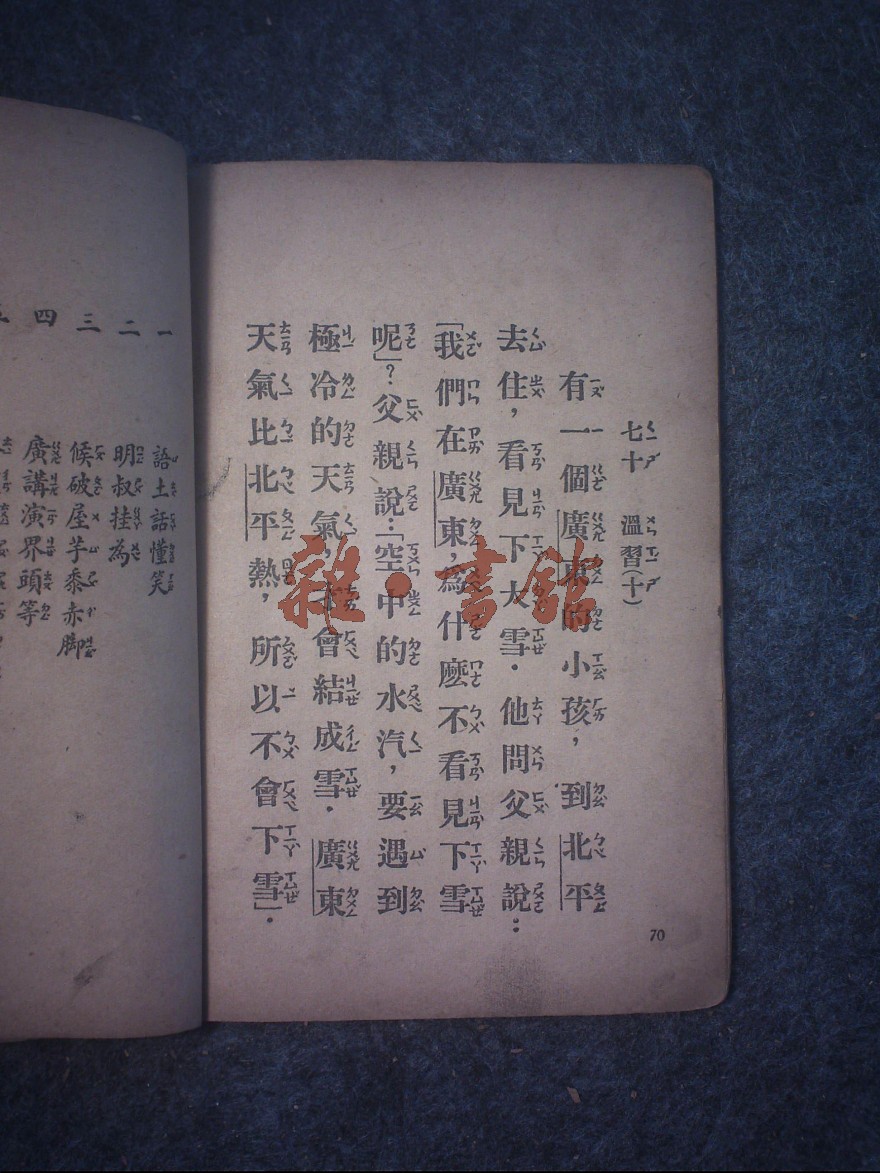 七十　溫習(十)
有一個廣東的小孩，到北平
去住，看見下大雪．他問父親說：
「我們在廣東，為什麼不看見下雪
呢」？父親說：「空中的水汽，要遇到
極冷的天氣，才會結成雪．廣東
天氣比北平熱，所以不會下雪」．
70
一　語土話懂笑
二　明叔挂為
三　候破屋芋泰赤脚
四　廣講演界頭等
雜·書館